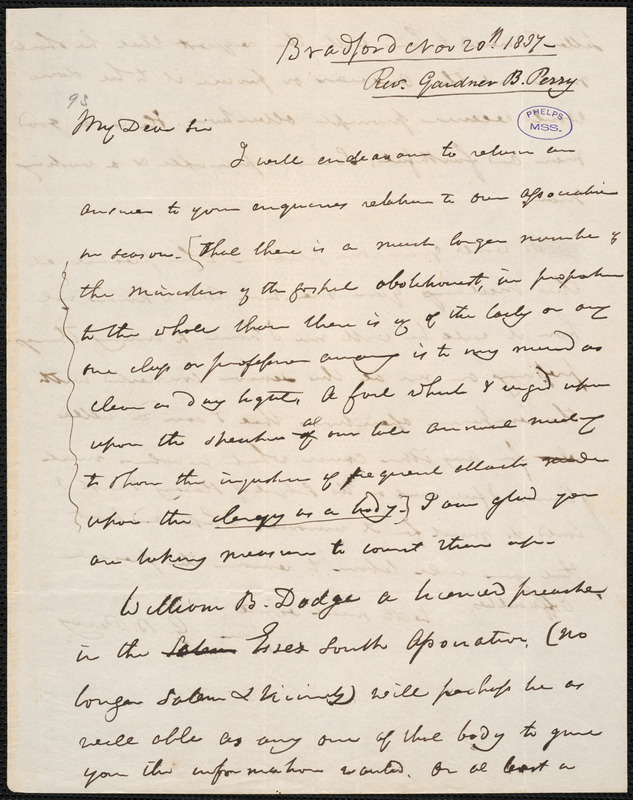 Bradford Nov 20th 1837-
Rev. Gardner B. Perry
93
PHELPS
MSS.
My Dear Sir
I will endeavour to return an
answer to your enquiries relation to our association
in season. [That there is a much larger number of
the ministers of the gospel abolitionist, in proportion
to the whole than there is of the laity or any
one class or profession among is to my mind as
clear as day light, A fact which I urged
upon the at our late annual meeting
to show the injustice of frequent attacks made
upon the clergy as a body.] I am glad you
are taking measure to count them up-
William B. Dodge a licenced preacher
in the Salem Essex South Association, (no
longer Salem & Vicinity) will perhaps be as
well able as any one of that body to give
you the information wanted, or at least a